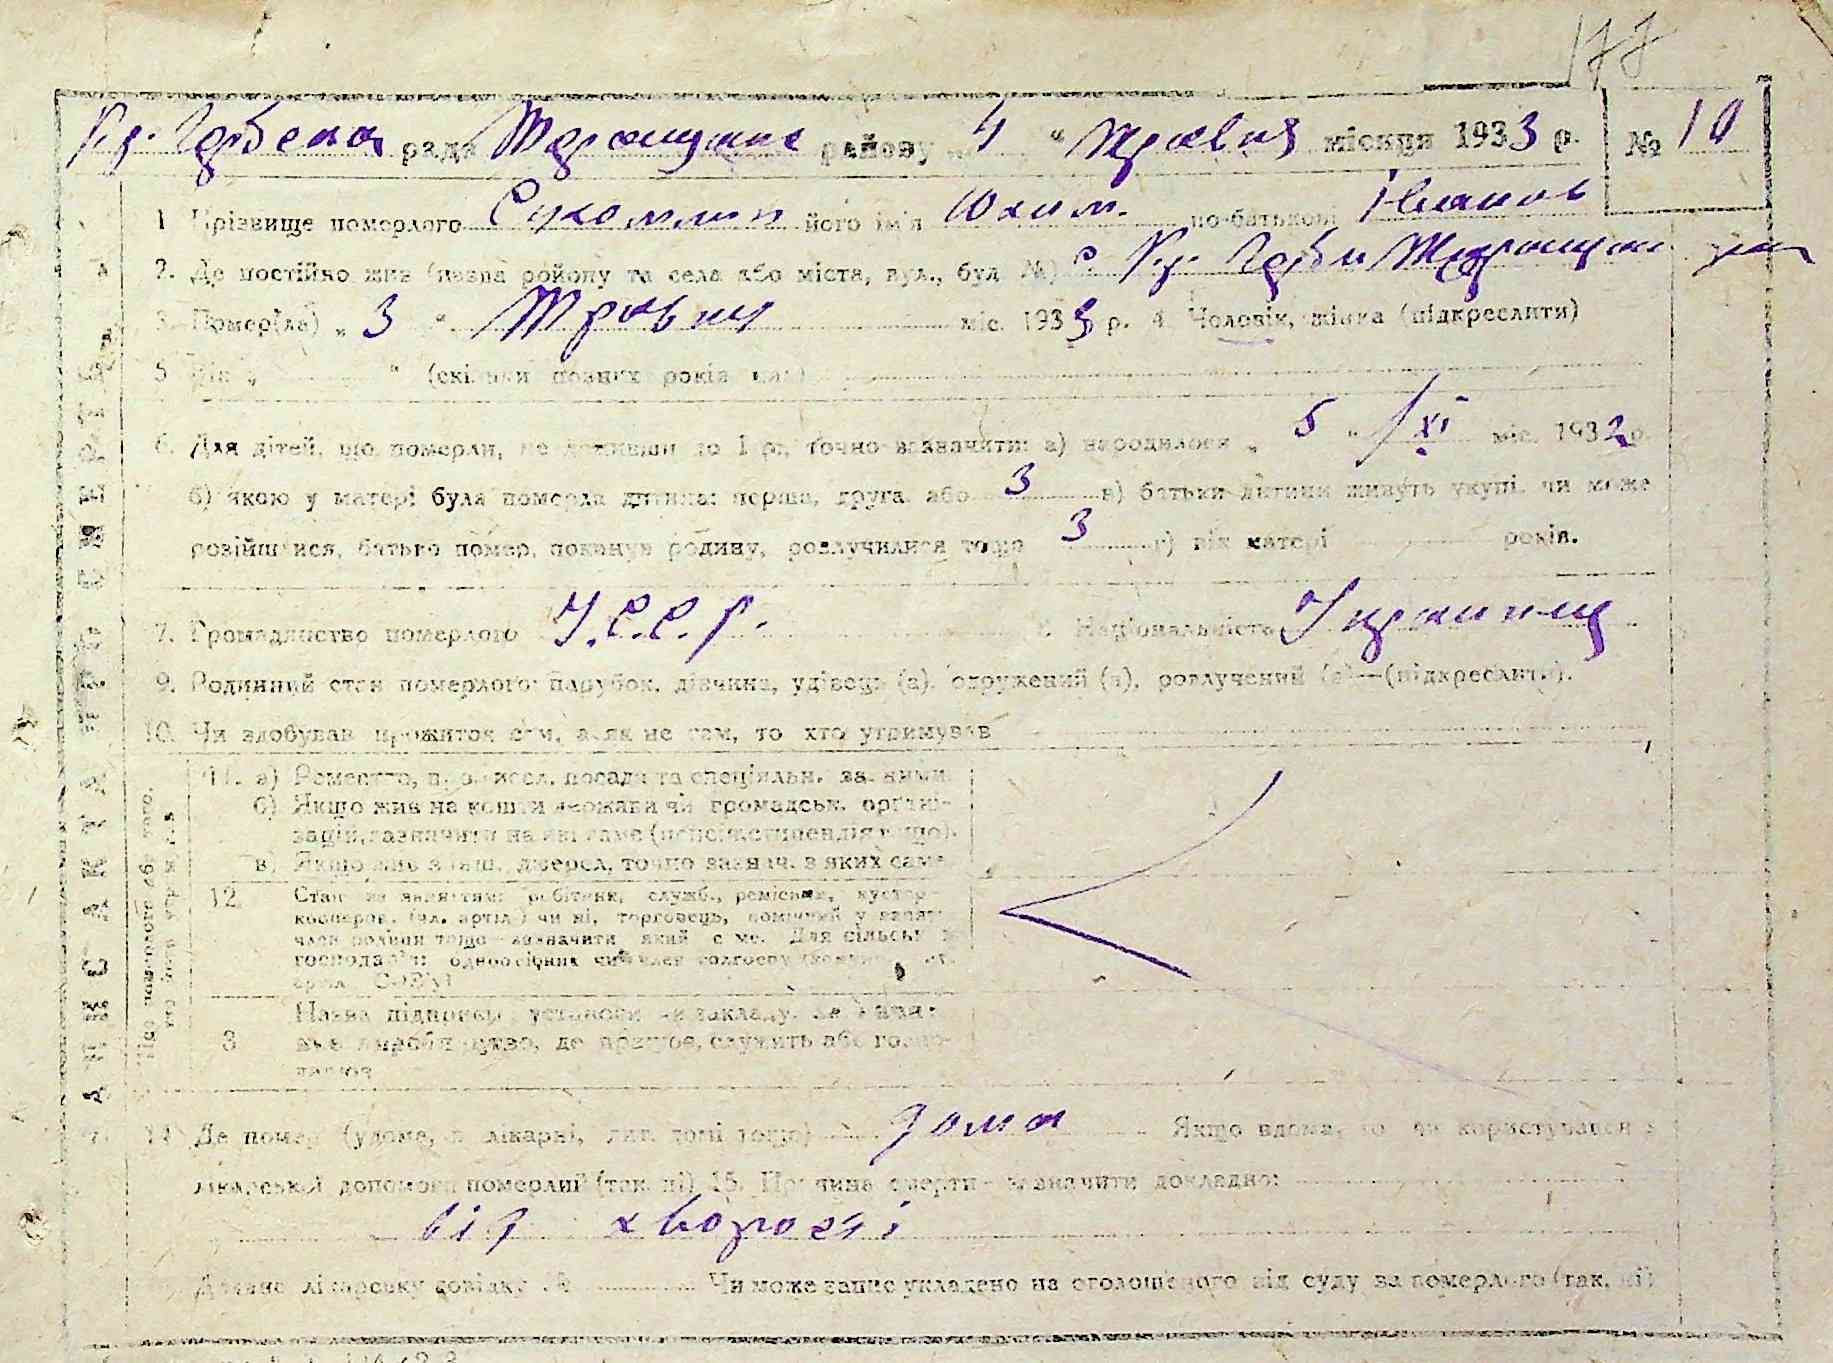 177
рада районy „ 4 “ Травня місяця 1933 р. № 10
1 Прізвище померлого Сухомлин його ім'я Юхим по-батькові Іванов
2. Де постійно жив (назва району та села або міста, вул., буд №) с. Кр.
3. Помер(ла) „ 3 “ Травня міс. 1933 р. 4. Чоловік, жінка (підкреслити)
5 Вік „ “ (скільки повних років мав)
6. Для дітей, що померли, не доживши до 1 р., точно зазначити: а) народилося „ 5 “ XI міс. 1932 р.
б) якою у матері була померла дитина: перша, друга або 3 в) батьки дитини живуть укупі, чи може
розійшлися, батько помер, покинув родину, розлучилися тощо 3 г) вік матері років.
7. Громадянство померлого У.С.С.Р. 8. Національність Українец
9. Родинний стан померлого: парубок, дівчина, удівець (а), одружений (а), розлучений (а)—(підкреслити).
10. Чи здобував прожиток сам, а як не сам, то хто утримував
11. а) Ремество, посада та спеціяльн.
б) Якщо жив на кошти держави чи громадськ. органі-
зацій, зазначити на які саме (пенсія, стипендія тощо).
в) Якщо жив з інш. джерел, точно зазнач. з яких саме
12. Стан робітник, служб., ремісник, кустар
кооперов. (чл. артілі) чи ні, торговець,
член родини тощо зазначити який саме. Для сільськ
господарів: одноосібник чи член колгоспу
Назва підприєм., установи чи закладу,
де працює, служить або
14 Де помер (удома, в лікарні, тощо) дома Якщо вдома, то чи користувався з
лікарської допомоги померлий (так, ні) 15. Причина смерти - зазначити докладно:
від хворості
лікарську довідку № Чи може запис укладено на оголошеного від суду за померлого (так, ні)
АКТ ПРО СМЕРТЬ